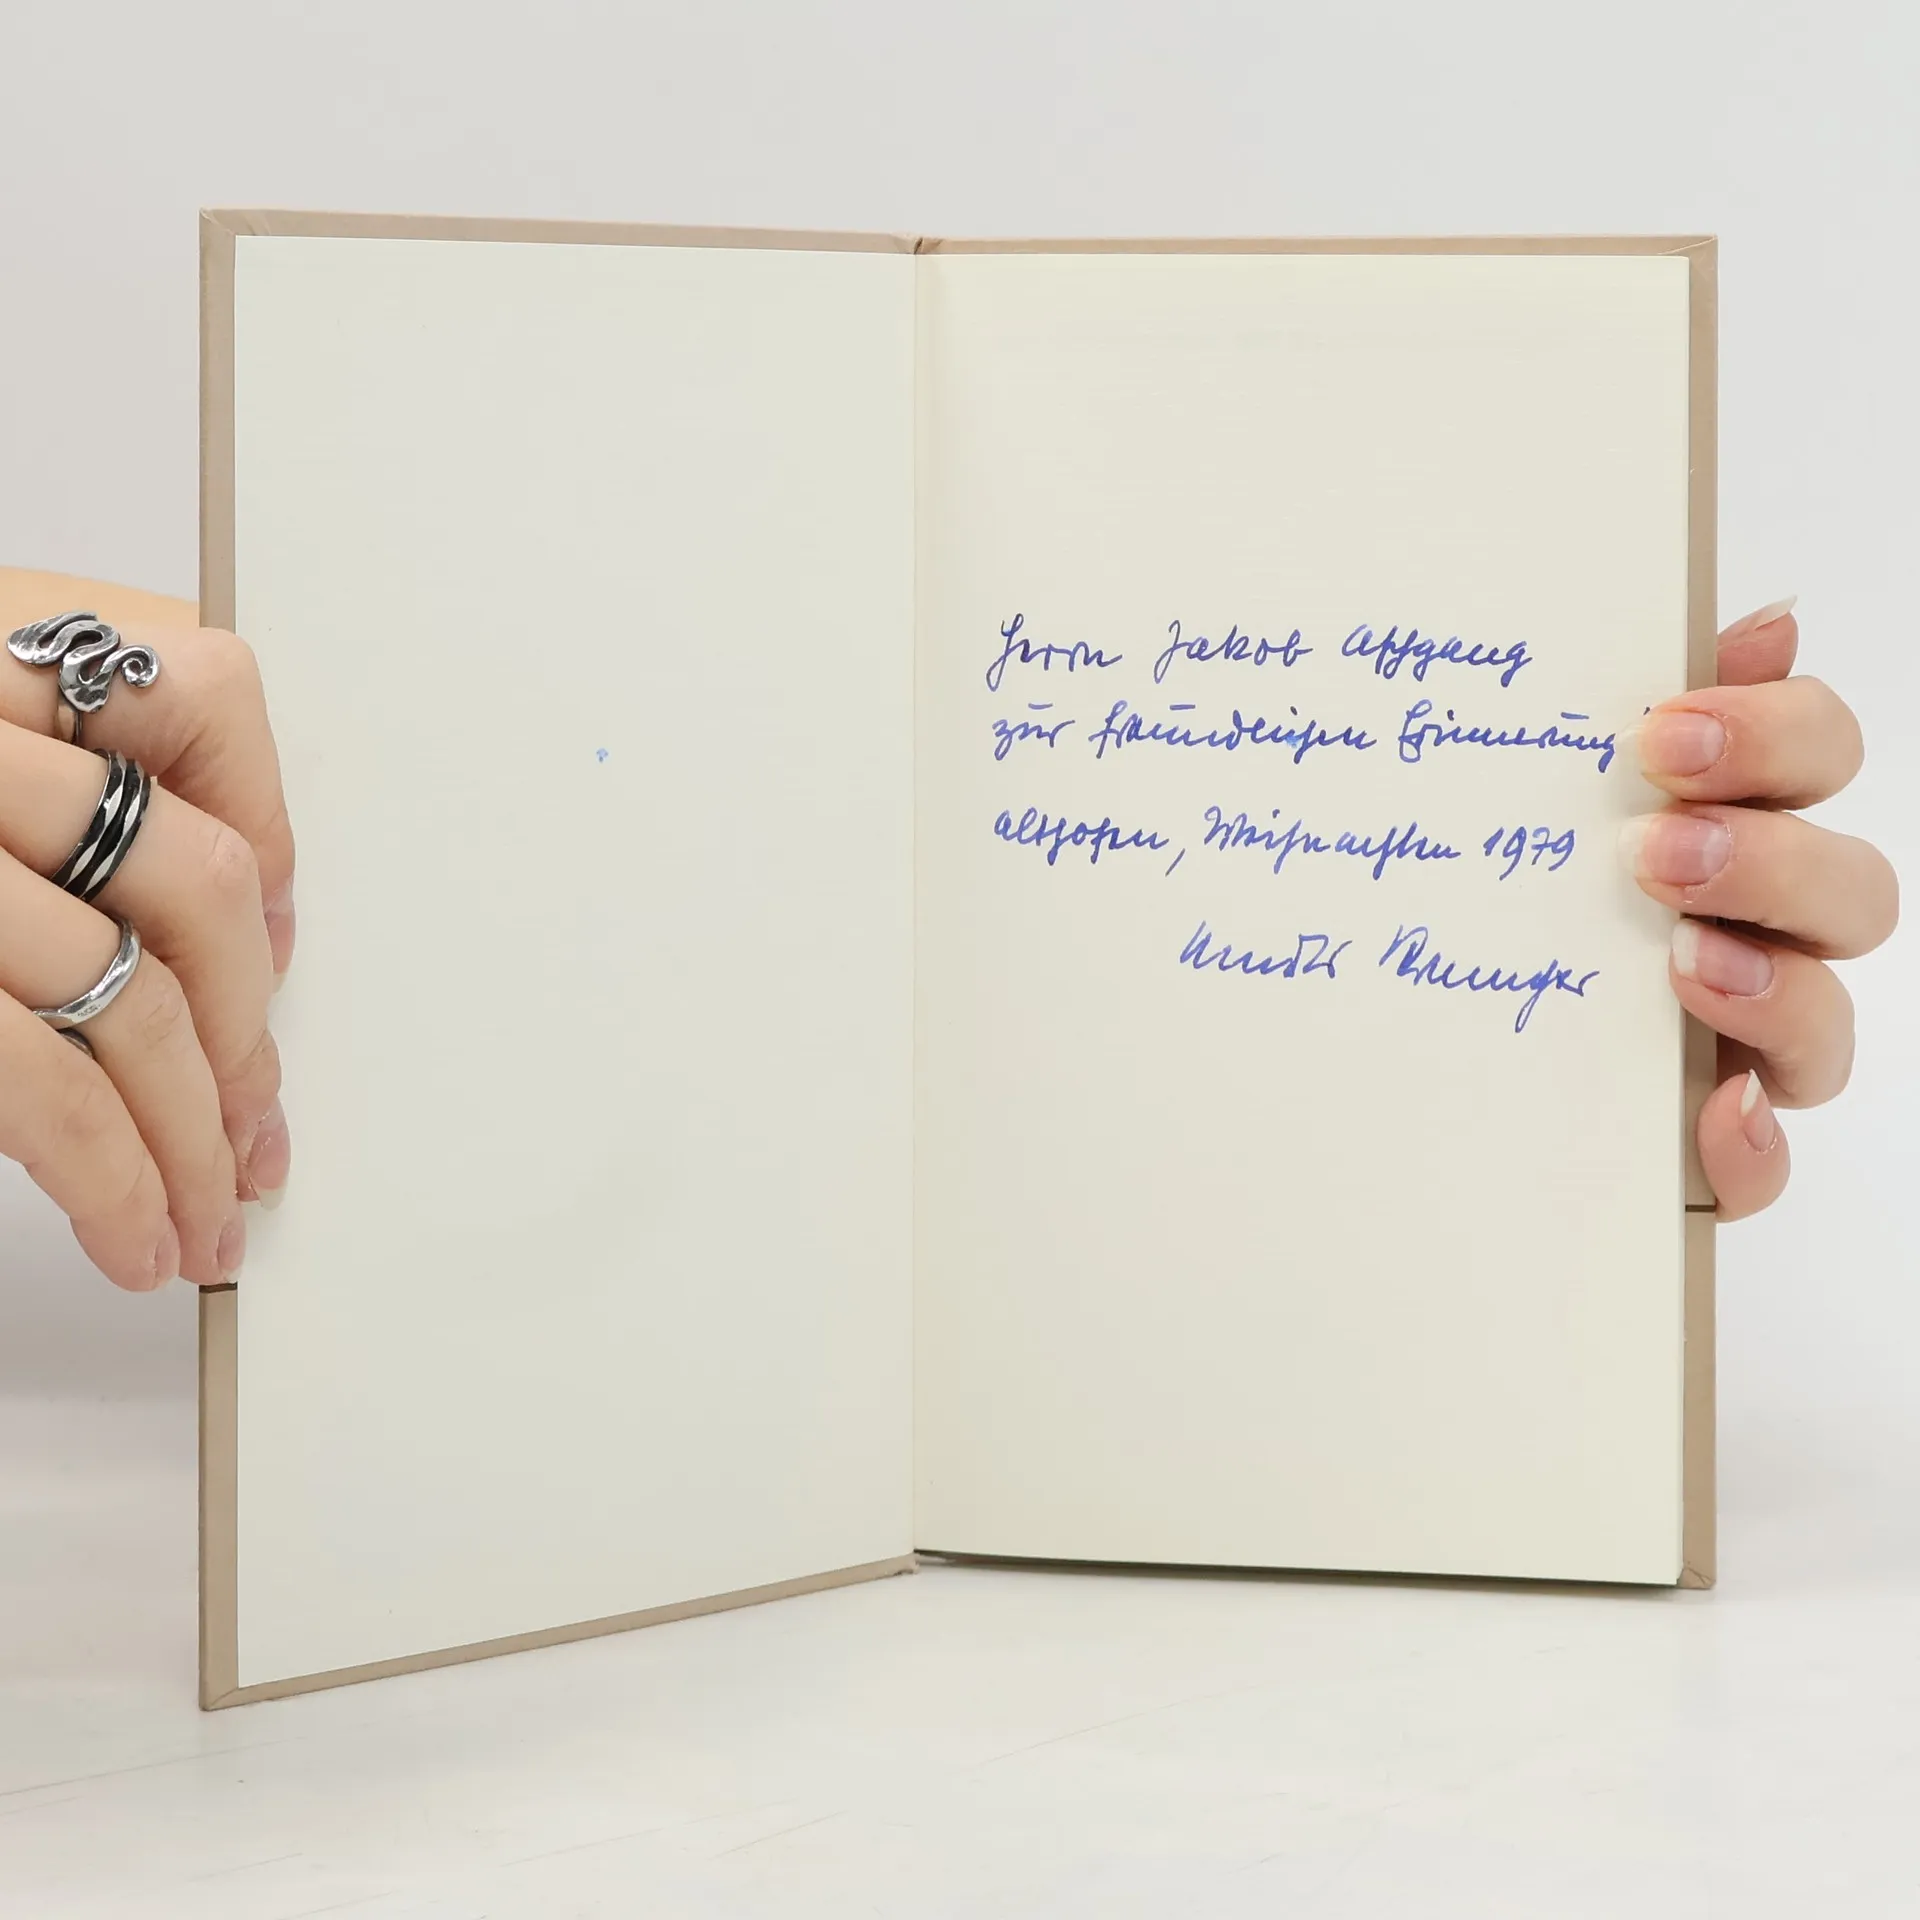 Herrn Jakob
zur freundlichen Erinnerung
Althofen, Weihnachten 1979